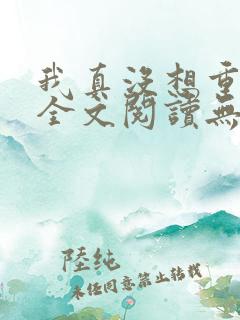 我真沒想重
全文閱讀無
陸純
未任同意禁止轉載